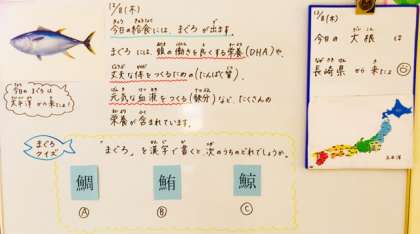 12/8(木)
今日の給食には、まぐろが出ます。
まぐろには、頭の働きを良くする栄養(DHA)や、
丈夫な体をつくるための(たんぱく質)、
元気な血液をつくる(鉄分)など、たくさんの
栄養が含まれています。
今日のまぐろは
太平洋から来たよ!
まぐろ
クイズ
「まぐろ」を漢字で書くと次のうちのどれでしょうか。
鯛
鮪
鯨
Ⓐ
Ⓑ
Ⓒ
12/8(木)
今日の大根は
長崎県から来たよ
太平洋